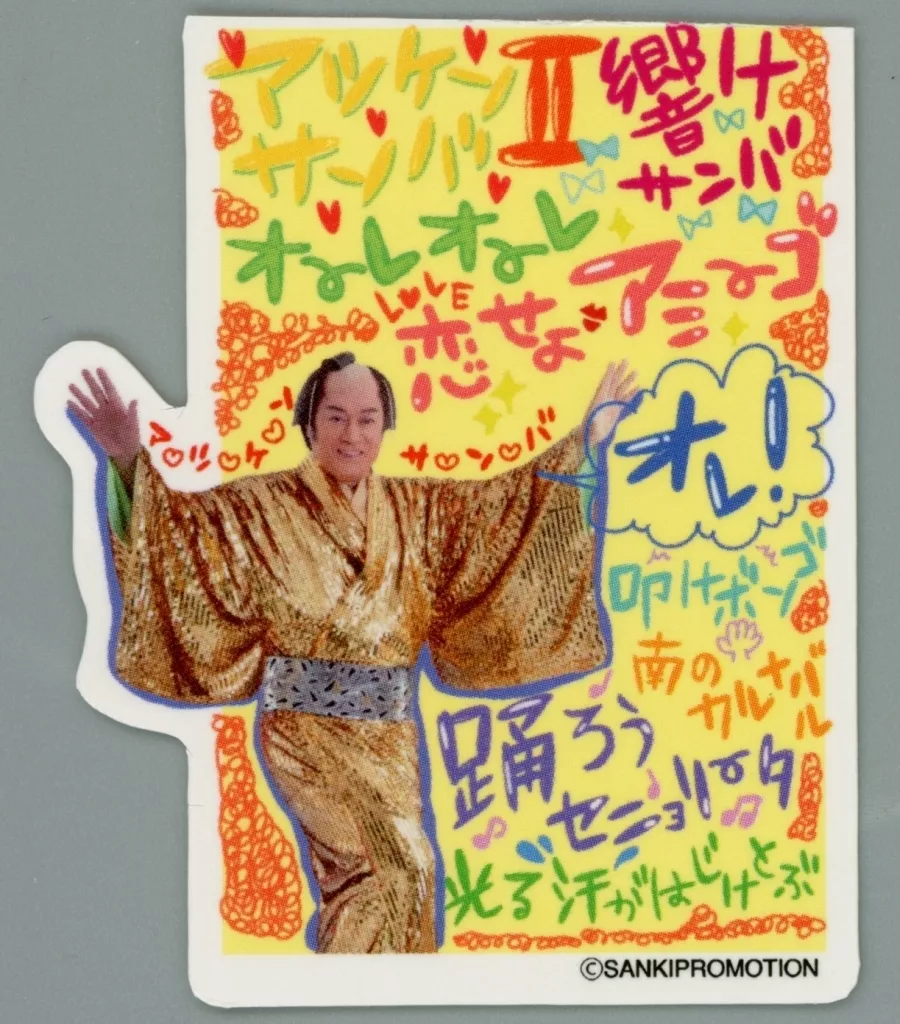 マツケン
サンバ
Ⅱ
響け
サンバ
オーレオーレ
LOVE
恋せよ
アミーゴ
マツケン
サンバ
オレ!
叩けボンゴ
南の
カルナバル
踊ろう
セニョリータ
光る汗がはじけとぶ
©SANKIPROMOTION